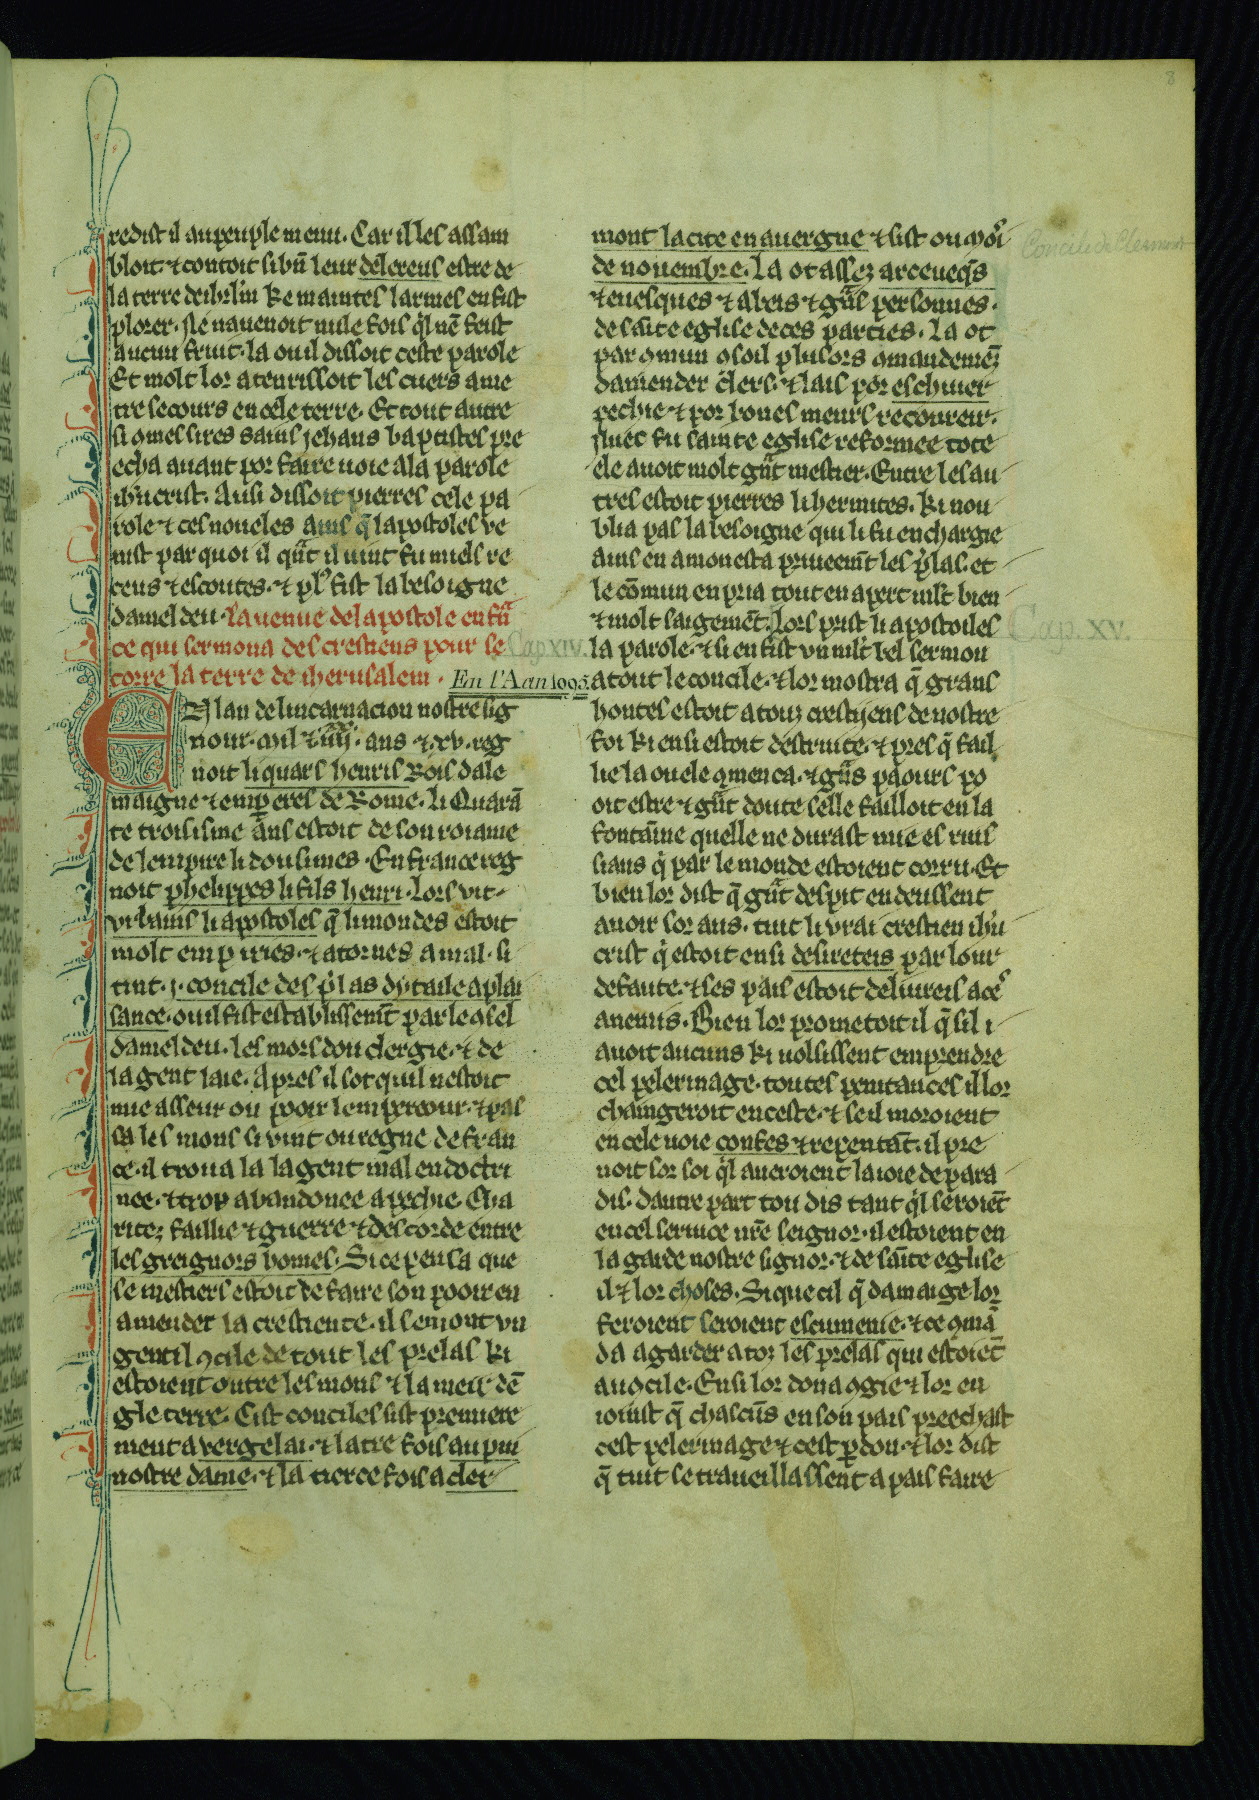 8
redist il au peuple menu. Car il les assam
bloit. ⁊ contoit si bn̄ leur delereus estre de
la terre de ihrl'm ke maintes larmes en fist
plorer. Ne n auenoit nule fois q̃l nē feist
aucun fruit. la ou il dissoit ceste parole
Et molt lor atenrissoit les cuers a me
tre secours en cele terre. Et tout autre
si ꝯ messires sains jehans baptistes pre
echa auant por faire uoie a la parole
ih'ucrist. Ausi dissoit pierres cele pa
role ⁊ ces noueles ains q̃ lapostoles ve
nist par quoi il qñt il uint fu miels re
ceus ⁊ escoutes. ⁊ pl' fist la besoigne
damel deu. La uenue de lapostole en frā
ce qui sermona des crestiens pour se
corre la terre de iherusalem.
Cap XIV.
En l'Aan 1095.
EN lan de lincarnacion nostre sig
nour. mil ⁊ iiii. ans ⁊ xv. reg
noit li quars henris Rois dale
maigne ⁊ emperes de Rome. li Quarā
te troisisme ans estoit de son roiame
de lempire li dousimes. En france reg
noit phelippes li fils henri. Lors vit
vrbains li apostoles q̃ li mondes estoit
molt empiries. ⁊ atornes a mal. si
tint .j. concile des p̃las dytaile a plai
sance. ou il fist establissem̄t par le ꝯsel
damel deu. les mors dou clergie. ⁊ de
la gent laie. Apres il sot quil nestoit
mie asseur ou pooir lempereour. ⁊ pas
sa les mons si vint ou regne de fran
ce. il troua la la gent mal endoctri
nee. ⁊ trop abandonee a pechie. Cha
ritez faillie ⁊ guerre ⁊ descorde entre
les greignors homes. Si ce pensa que
se mestiers estoit de faire son pooir en
amender la crestiente. il semont vn
gentil ꝯcile de tout les prelas ki
estoient outre les mons ⁊ la meir dē
gleterre. Cist conciles sist premiere
ment a vergelai. ⁊ latre fois au pui
nostre dame. ⁊ la tierce fois a cler
mont la cite en auergne ⁊ sist ou moi
Concile de Clermont
de nouembre. La ot assez arceueq̃s
⁊ euesques ⁊ abeis ⁊ gñs personnes.
de sāite eglise de ces parties. La ot
par ꝯmun ꝯsoil plusors ꝯmandemēz
damender clers. ⁊ lais por eschiuer
pechie ⁊ por bones meurs recoureir.
Auec fu sainte eglise reformee tote
ele auoit molt gñt mestier. Entre les au
tres estoit pierres li hermites. Ki nou
blia pas la besoigne qui li fu enchargie
ains en amonesta priueem̄t les p̃las. et
le cōmun en pria tout en apert mlt bien
⁊ molt saigemēt. Lors prist li apostoiles
Cap. XV.
la parole. ⁊ si en fist vn mlt bel sermon
a tout le concile. ⁊ lor mostra q̃ grans
hontes estoit a touz crestijens de nostre
foi ki ensi estoit destruite. ⁊ pres q̃ fail
lie la ou ele ꝯmenca. ⁊ gñs paours po
oit estre ⁊ gñt doute selle failloit en la
fontainne quelle ne durast mie es ruis
sians q̃ par le monde estoient corru. Et
bien lor dist q̃ gñt despit en deussent
auoir sor aus. tuit li vrai crestien ih'u
crist q̃ estoit ensi desireteis par lour
defaute. ⁊ ses pais estoit deliureis a ce
anemis. Bien lor prometoit il q̃ sil i
auoit aucuns ki uolsissent emprendre
cel pelerinage. toutes penitances il lor
chaingeroit en ceste. ⁊ se il moroient
en cele uoie confes ⁊ repentāt. il pre
noit sor soi q̃l aueroient la ioie de para
dis. dautre part tou dis tant q̃l seroiēt
en cel seruice nr̄e seignor. il estoient en
la garde nostre signor. ⁊ de sāite eglise
il ⁊ lor choses. Si que cil q̃ damaige lor
feroient seroient escumenie. ⁊ ce ꝯmā
da a garder a toz les prelas qui estoiēt
au ꝯcile. Ensi lor dona ꝯgie ⁊ lor en
ioinst q̃ chascūs en son pais preechast
cest pelerinage ⁊ cest pardon. ⁊ lor dist
q̃ tuit se traueillassent a pais faire